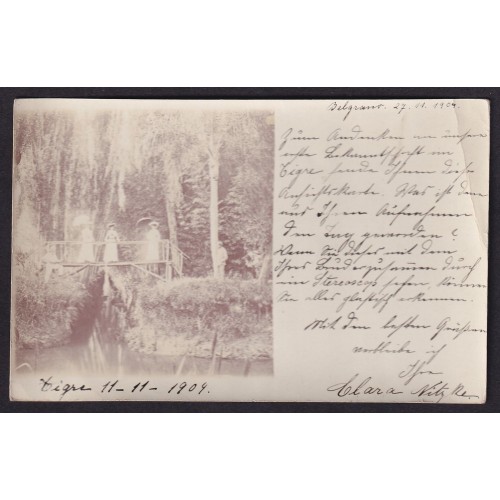 Belgrano. 27. 11. 1904.
Zum Andenken an unsere
erste Bekanntschaft im
Tigre sende Ihnen diese
Ansichtskarte. Was ist denn
aus Ihren Aufnahmen
den geworden?
Wenn Sie dieses mit dem
Ihres Bruders zusammen durch
ein Stereoscop sehen, können
Sie alles plastisch erkennen.
Mit den besten Grüssen
verbleibe ich
Ihre
Clara Nitzke
Tigre 11 - 11 - 1904.